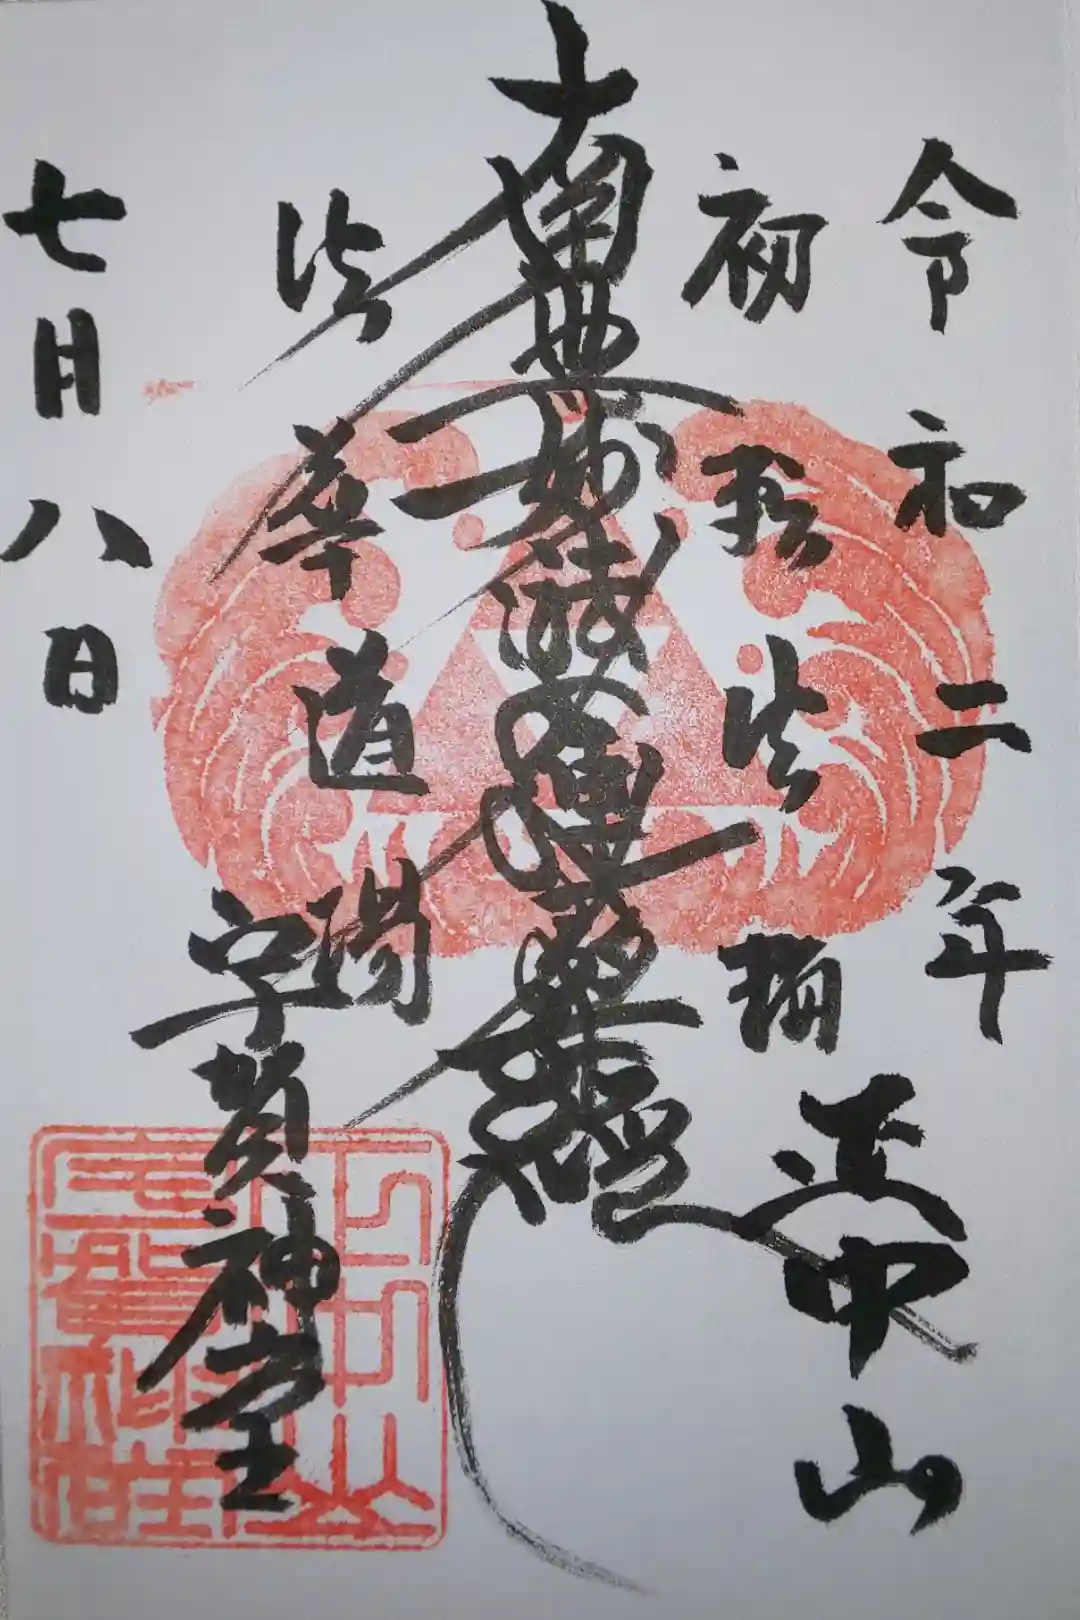 令和二年
正中山
初転法輪
南無妙法蓮華経
法華道場
宇賀神堂
七月八日